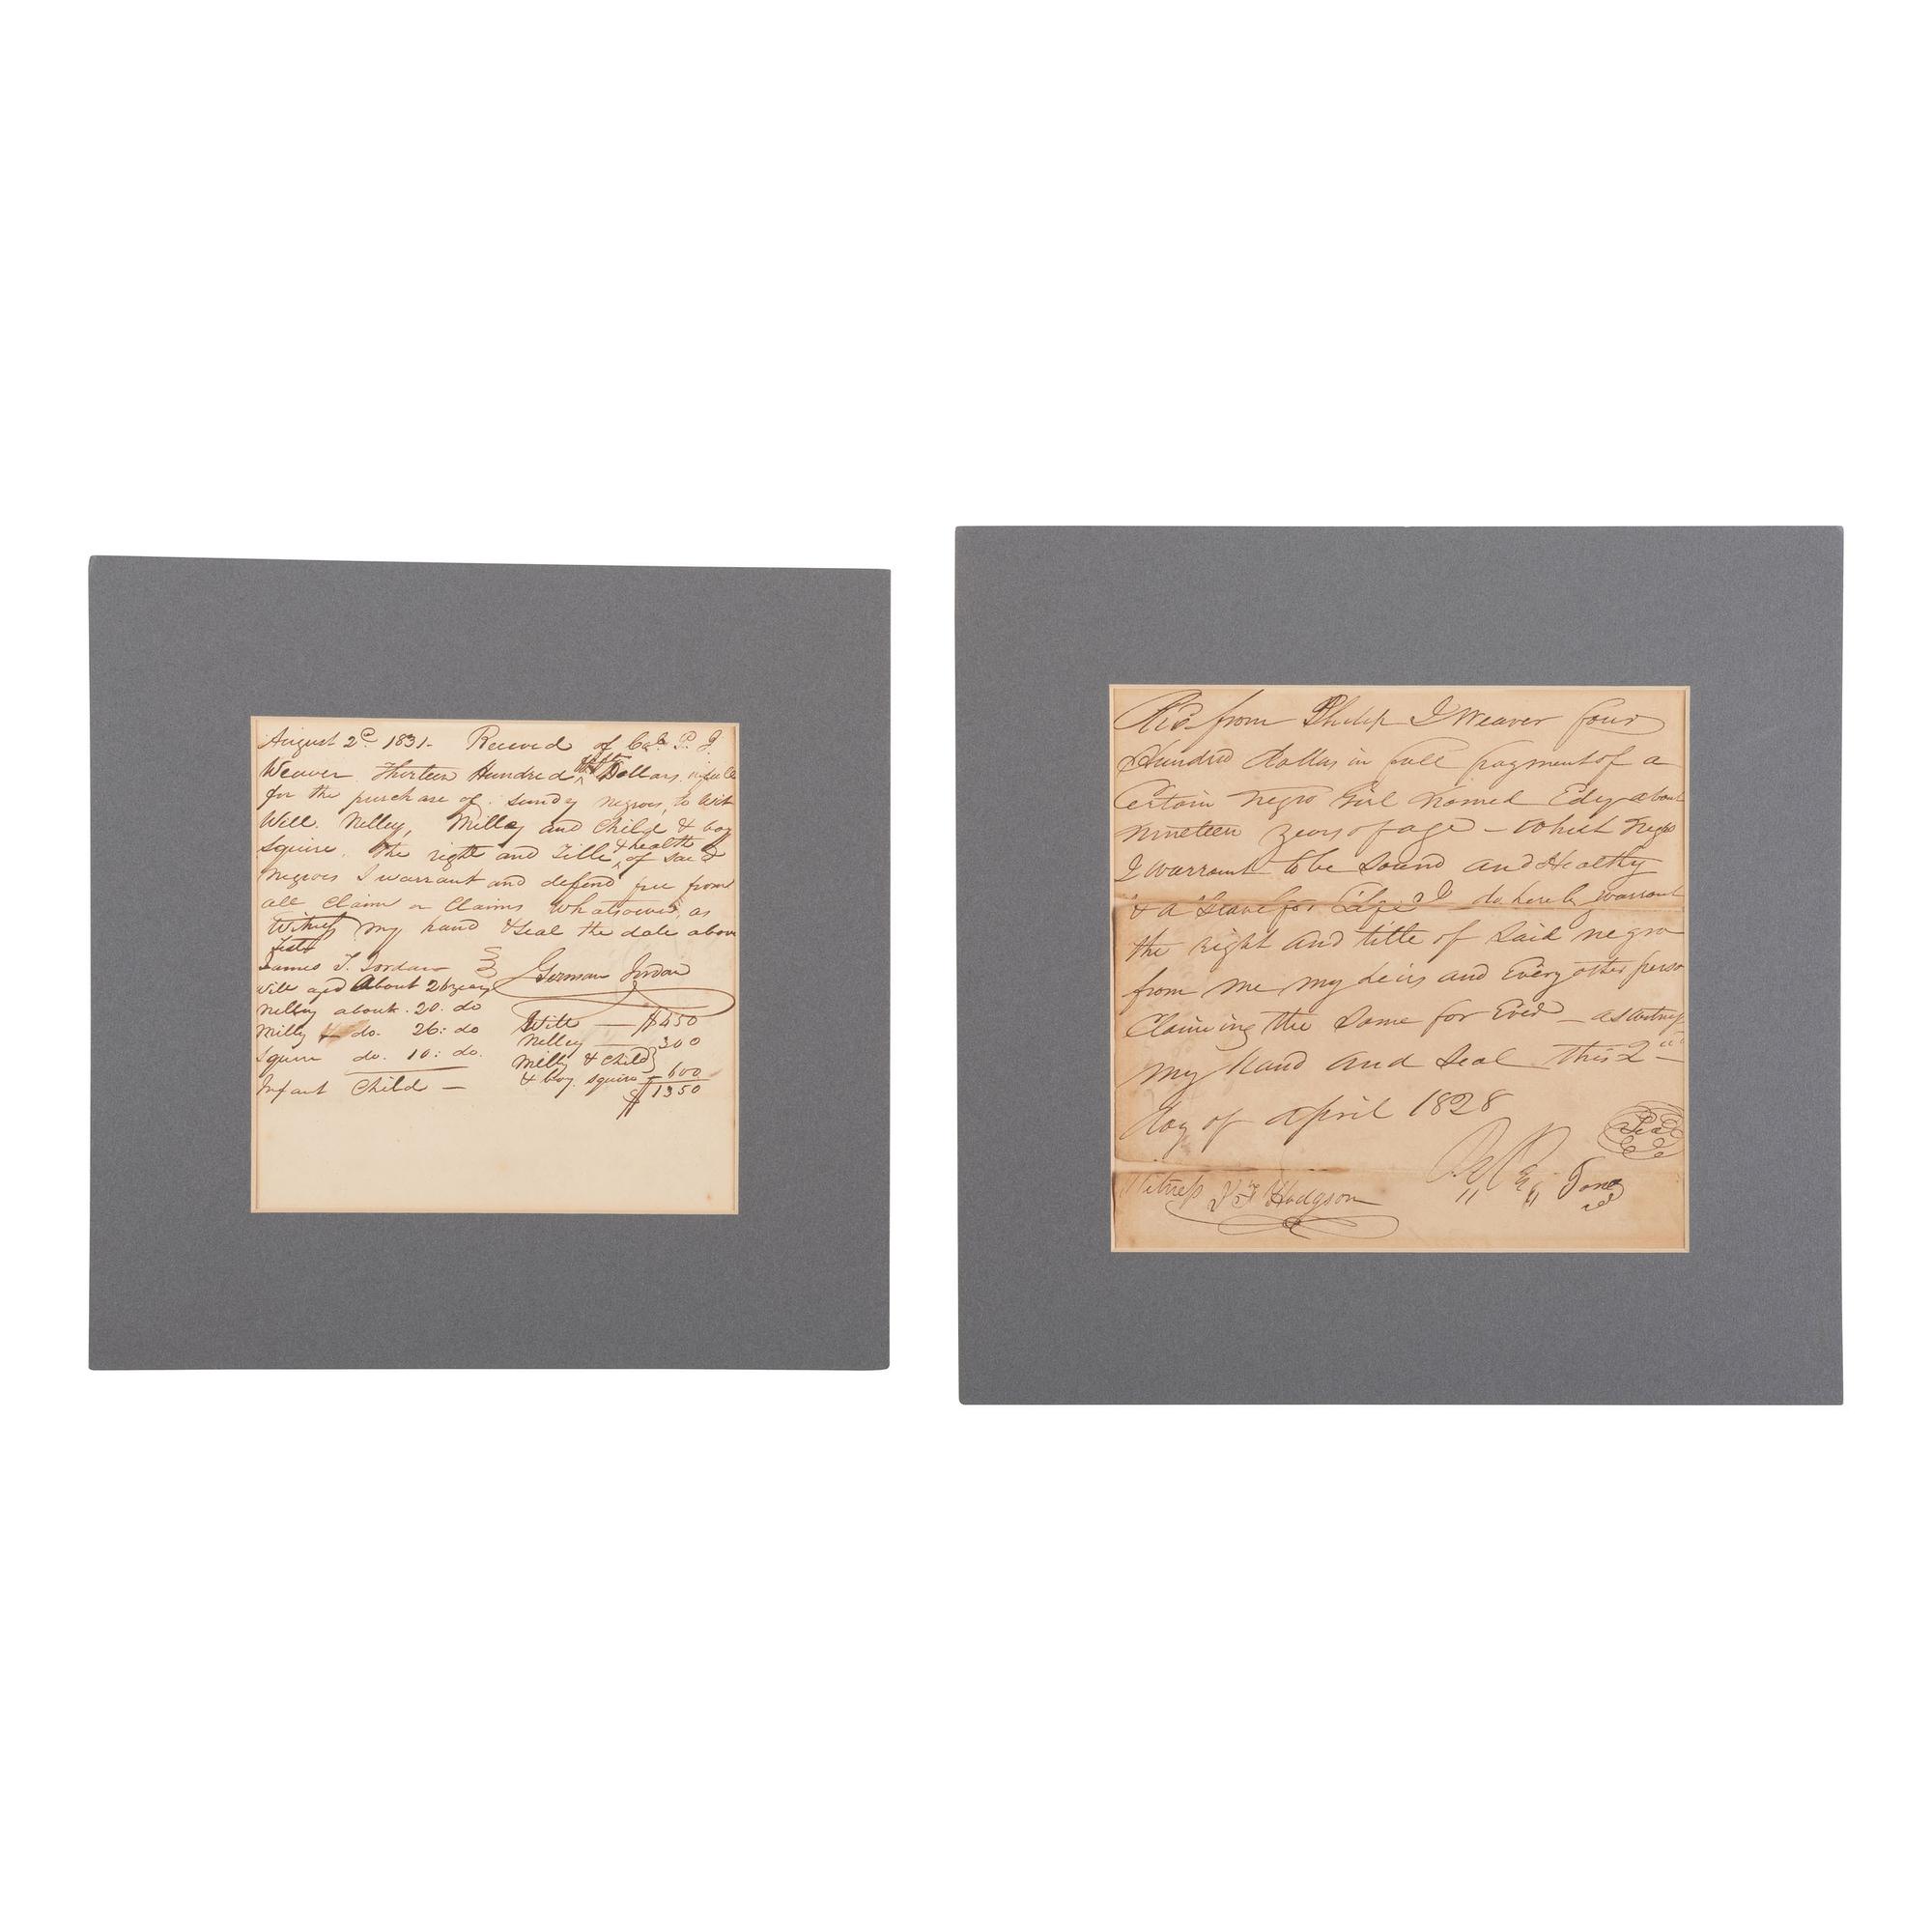 August 2d 1831. Received of Col. P. J.
Weaver Thirteen Hundred & fifty Dollars, in full
for the purchase of sundy negroes, to wit
Will. Nelley, Milly and Child & boy
Squire. The right and title, & health of said
negroes I warrant and defend free from
all claim or claims whatsoever, as
Witness my hand & seal the date above
Test
James T. Jordan German Jordan
Will aged about 26 years
Nelley about. 20. do
Milly do. 26: do
Squire do. 10: do.
Infant Child —
Will — $450
Nelley — 300
Milly & Child
& boy. Squire — 600
$1350
Recd. from Philip J Weaver four
Hundred Dollas in full payment of a
Certain negro Girl Named Edy about
nineteen years of age – which negro
I warrant to be Sound and Healthy
& a Slave for Life I do hereby warrant
the right and title of said negro
from me my heirs and Every other person
Claiming the Same for Ever – as witness
my hand and Seal this 2nd
day of april 1828
Seal
Jones
Witness Hodgson